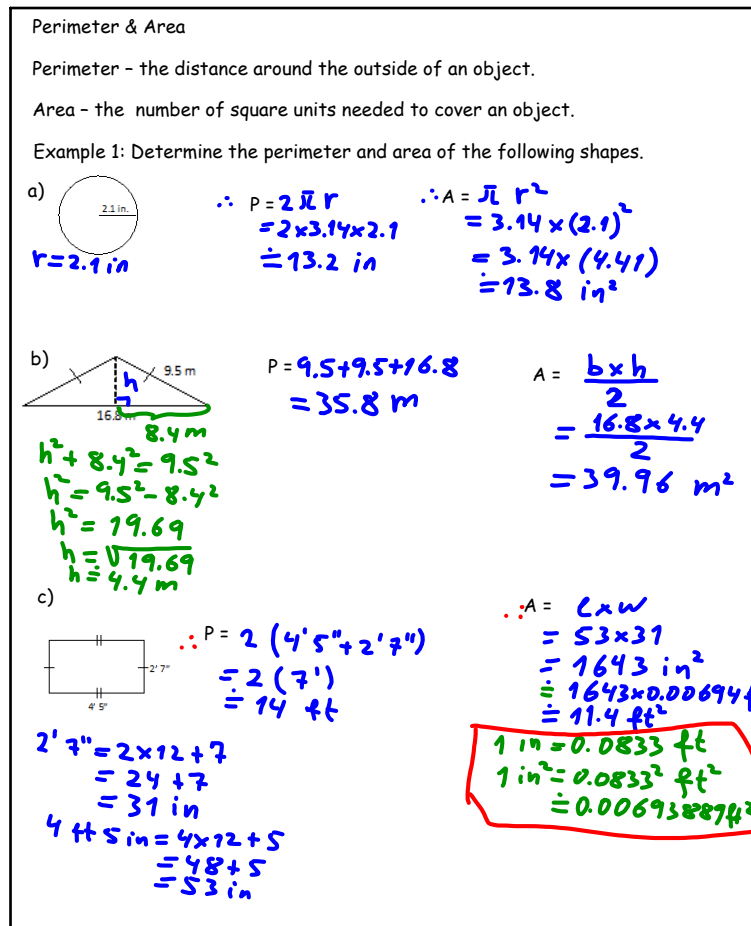 Perimeter & Area
Perimeter – the distance around the outside of an object.
Area – the number of square units needed to cover an object.
Example 1: Determine the perimeter and area of the following shapes.
a)
2.1 in.
r=2.1 in
∴ P = 2πr
= 2×3.14×2.1
≐ 13.2 in
∴ A = π r²
= 3.14 × (2.1)²
= 3.14× (4.41)
≐ 13.8 in²
b)
9.5 m
h
16.8 m
8.4 m
h² + 8.4² = 9.5²
h² = 9.5² – 8.4²
h² = 19.69
h = √19.69
h ≐ 4.4 m
P = 9.5+9.5+16.8
= 35.8 m
A = b×h
2
= 16.8× 4.4
2
= 39.96 m²
c)
2' 7"
4' 5"
∴ P = 2 (4'5"+2'7")
= 2 (7')
≐ 14 ft
2' 7" = 2×12+7
= 24 +7
= 31 in
4 ft 5 in = 4×12+5
= 48+5
= 53 in
∴ A = l×w
= 53×31
= 1643 in²
≐ 1643×0.00694 f
≐ 11.4 ft²
1 in = 0.0833 ft
1 in² = 0.0833² ft²
≐ 0.00693889 ft²